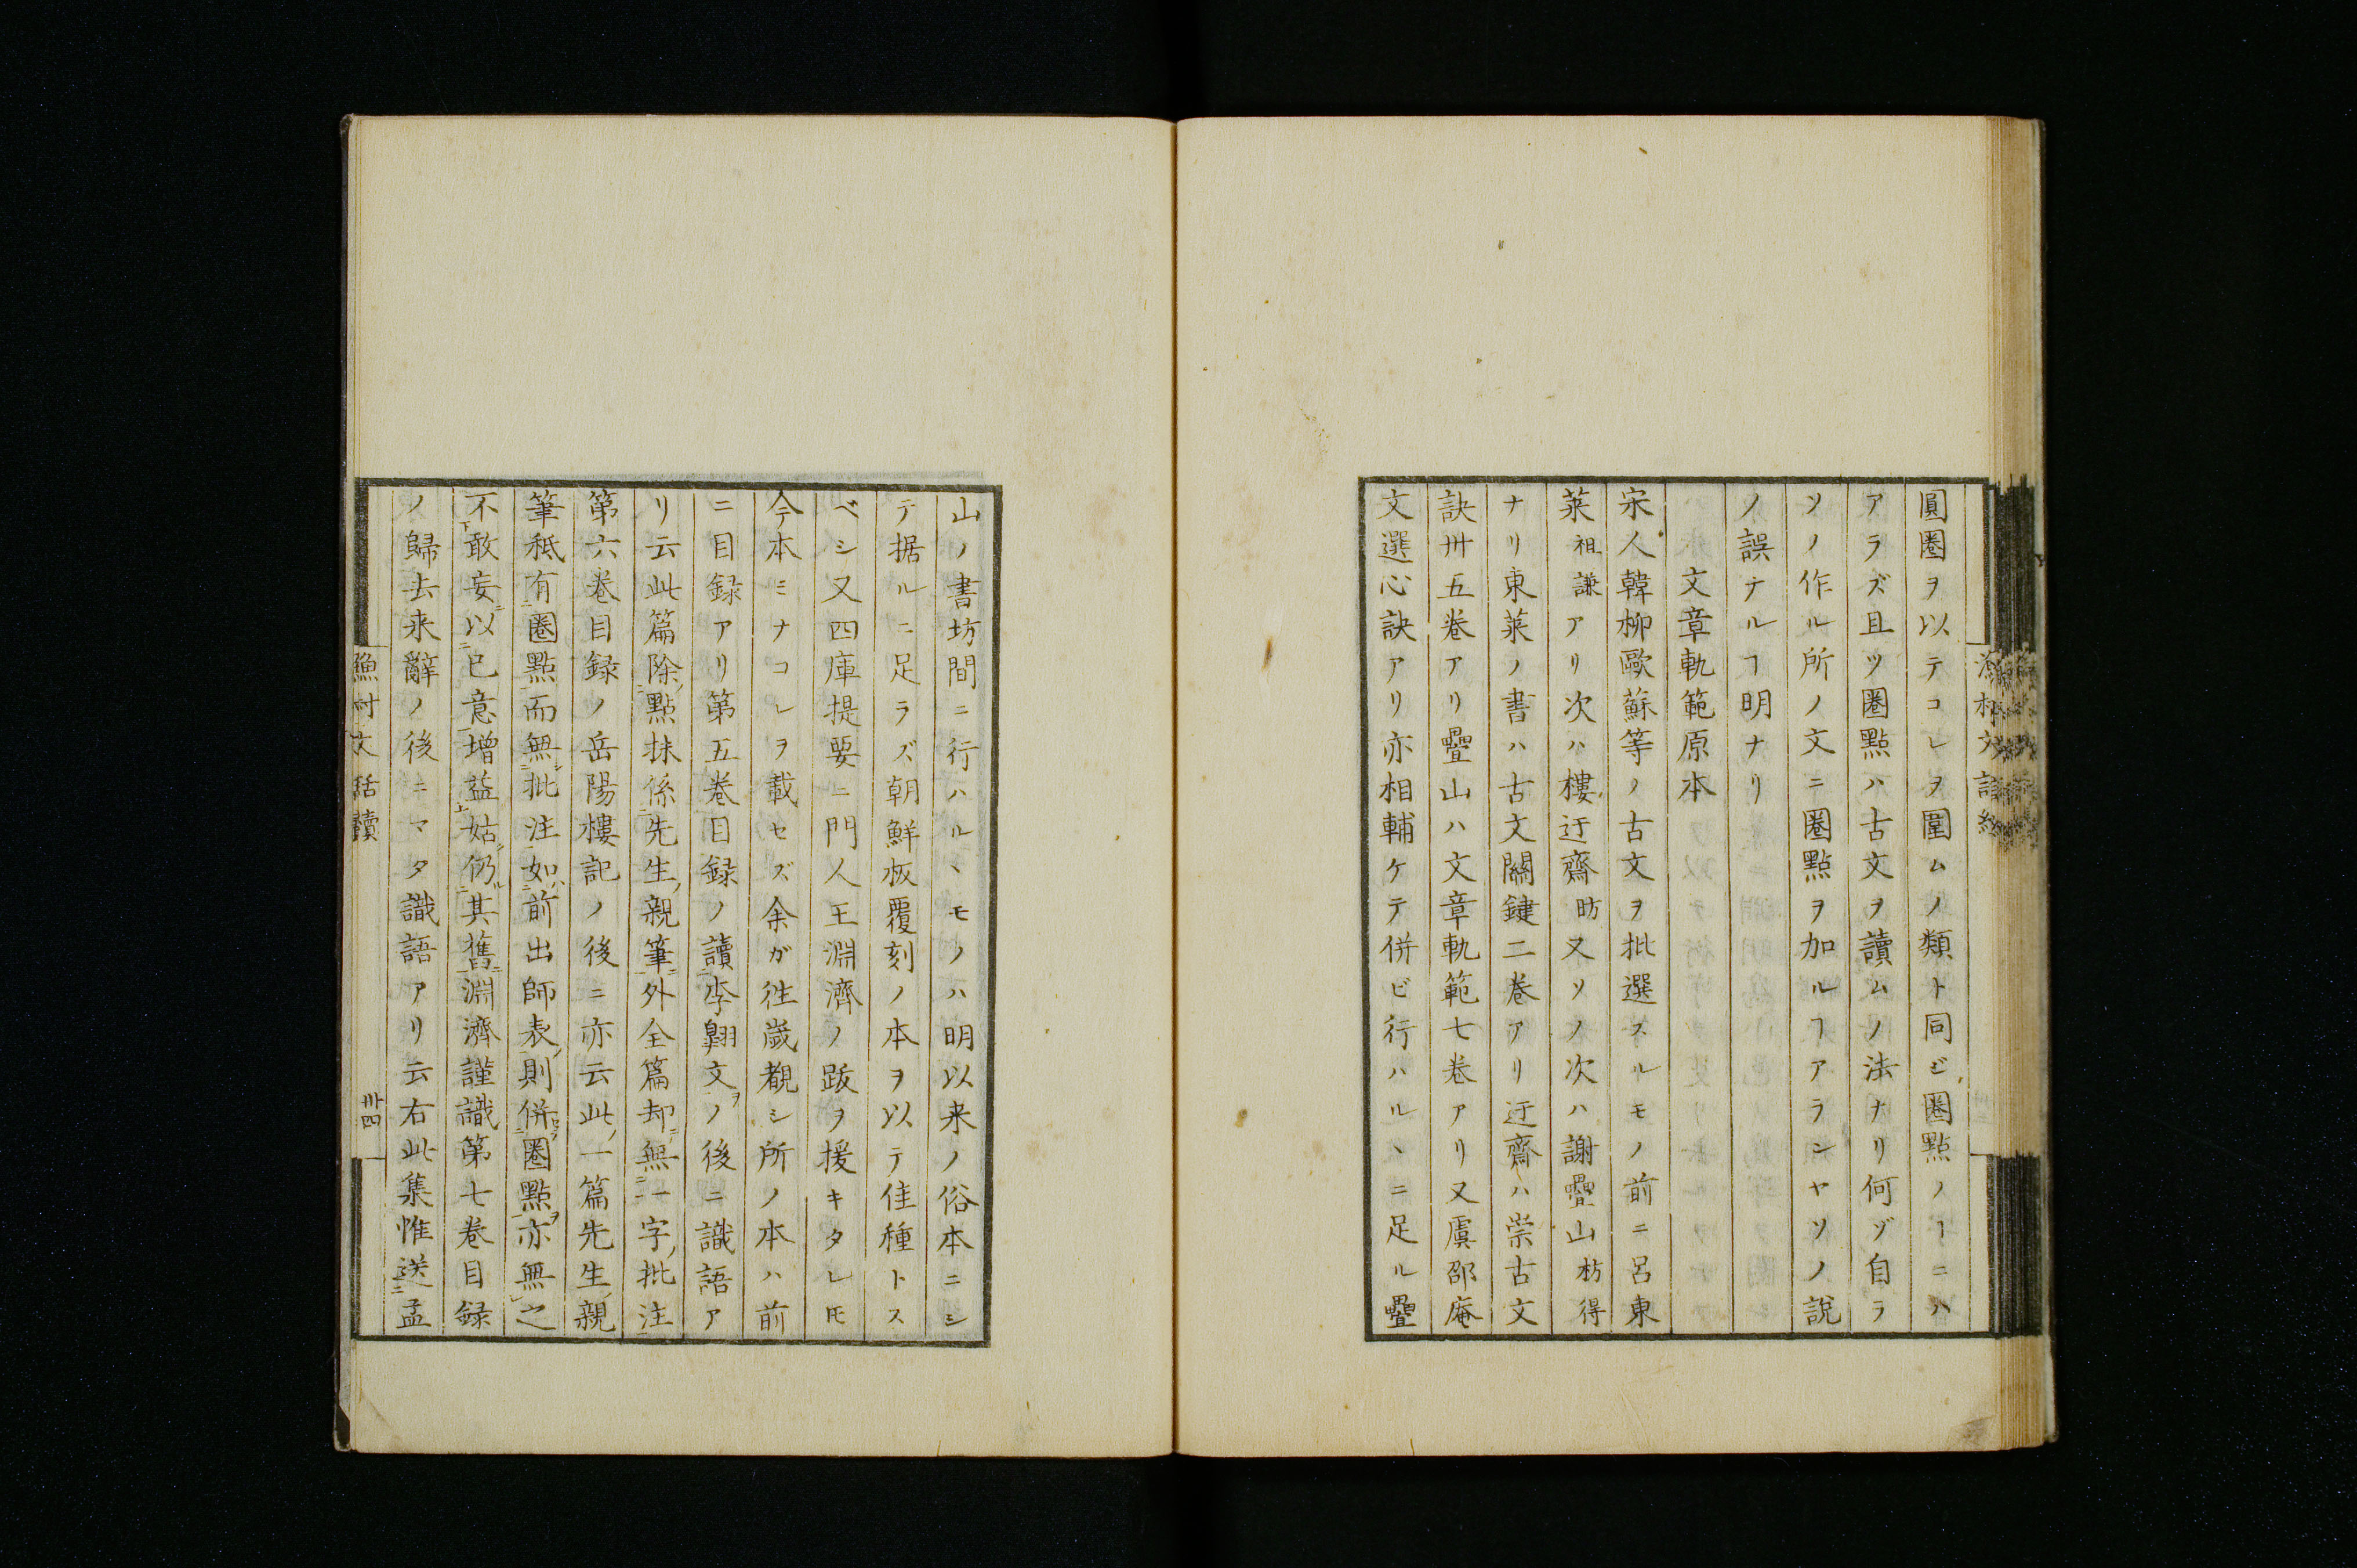 圓圈ヲ以テコレヲ圍ムノ類ト同ジ圈點ノヿニハ
アラズ且ツ圈點ハ古文ヲ讀ムノ法ナリ何ゾ自ラ
ソノ作ル所ノ文ニ圈點ヲ加ルヿアランヤソノ說
ノ誤ナルヿ明ナリ
文章軌範原本
宋人韓柳歐蘇等ノ古文ヲ批選スルモノ前ニ呂東
萊祖謙アリ次ハ樓迂齋昉又ソノ次ハ謝疊山枋得
ナリ東萊ノ書ハ古文關鍵二卷アリ迂齋ハ崇古文
訣卅五卷アリ疊山ハ文章軌範七卷アリ又虞邵庵
文選心訣アリ亦相輔ケテ併ビ行ハルヽニ足ル疊
山ノ書坊間ニ行ハルヽモノハ明以来ノ俗本ニシ
テ据ルニ足ラズ朝鮮板覆刻ノ本ヲ以テ佳種トス
ベシ又四庫提要ニ門人王淵濟ノ跋ヲ援キタレ𪜈
今本ミナコレヲ載セズ余ガ徃歲覩シ所ノ本ハ前
ニ目録アリ第五卷目録ノ讀李翺文ヲノ後ニ識語ア
リ云此篇除點抹係先生親筆外全篇却無一字批注
第六卷目録ノ岳陽樓記ノ後ニ亦云此一篇先生親
筆秪有圈點而無批注如前出師表則併圈點亦無之
不敢妄以已意增益姑仍其舊淵濟謹識第七卷目録
ノ歸去来辭ノ後ニマタ識語アリ云右此集惟送孟
漁村文話續
卅四